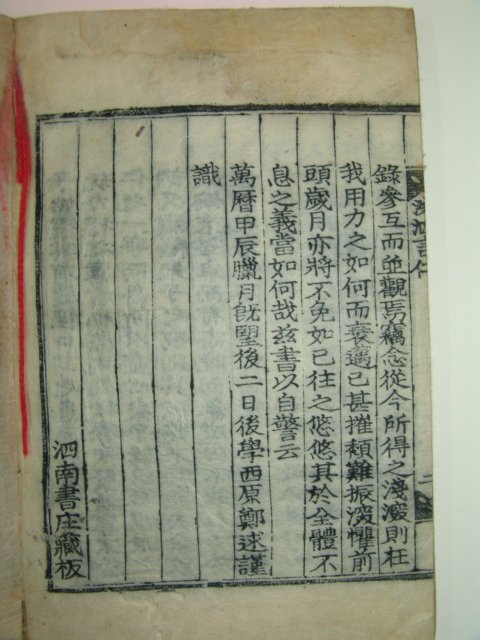 洙泗言仁
錄參互而並觀焉竊念從今所得之淺深則在
我用力之如何而衰邁已甚摧頹難振深懼前
頭歲月亦將不免如已往之悠悠其於全體不
息之義當如何哉玆書以自警云
萬曆甲辰臘月旣望後二日後學西原鄭逑謹
識
泗南書庄藏板